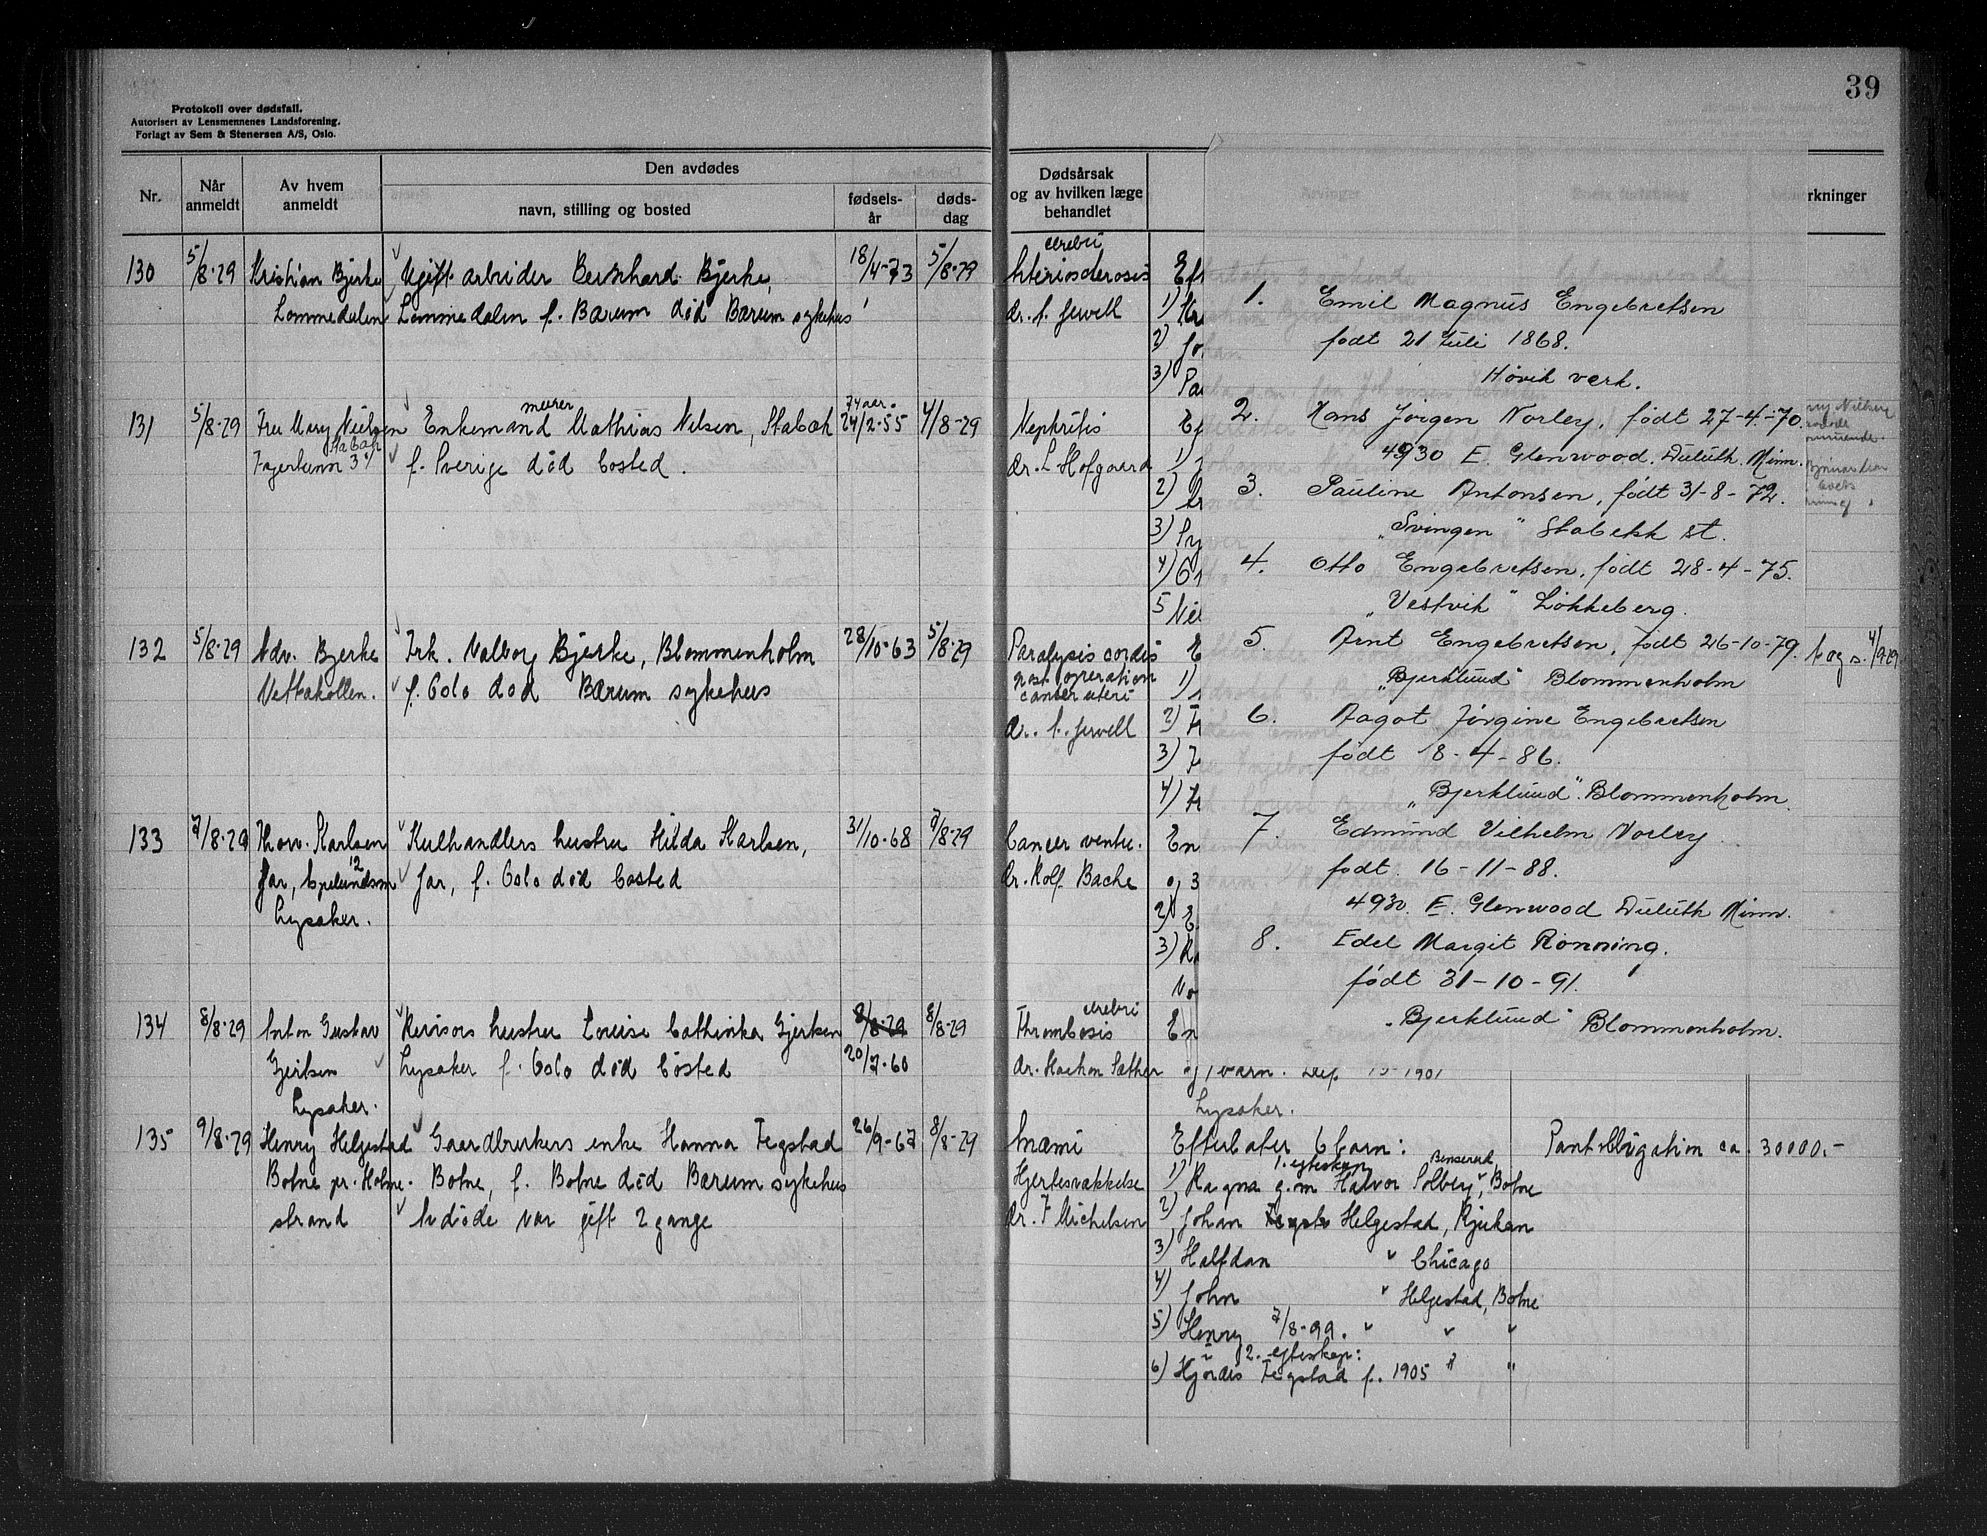 39
Protokoll over dødsfall.
Autorisert av Lensmennenes Landsforening.
Forlagt av Sem & Stenersen A/S, Oslo.
Nr.
Når anmeldt
Av hvem anmeldt
Den avdødes
navn, stilling og bosted
fødsels-år
døds-dag
Dødsårsak og av hvilken læge behandlet
rkninger
130 5/8-29 Kristian Bjerke Ugift arbeider Bernhard Bjerke, 18/4-73 5/8-29
Lommedalen Lommedalen f. Bærum død Bærum sykehus
131 5/8-29 Fru Mary Nielsen Enkemand murer Mathias Nilsen, Stabæk 74 aar. 24/2-55 4/8-29
Stabæk
f. Sverige død bosted.
132 5/8-29 Adv. Bjerke Frk. Valborg Bjerke, Blommenholm 28/10-63 5/8-29
Vettakollen. f. Oslo død Bærum sykehus
133 7/8-29 Thorv. Karlsen Kulhandlers hustru Hilda Karlsen, 31/10-68 7/8-29
Jar, Jar, f. Oslo død bosted
Lysaker.
134 8/8-29 Anton Gustav Revisors hustru Louise Cathinka Gjertsen 8/8-29 8/8-29
Gjertsen Lysaker f. Oslo død bosted 20/7-60
Lysaker.
135 9/8-29 Henry Helgestad Gaardbrukers enke Hanna Tegstad 26/9-67 8/8-29
Botne pr. Holme- Botne, f. Botne død Bærum sykehus
strand Avdøde var gift 2 gange
cerebri
Arteriosclerosis
dr. f. Jervell
1)
2)
3)
Nephritis
dr. L Hofgaard
1)
2)
3)
4)
5
Paralysis cordis
post operation
cancer uteri
dr. f. Jervell
1)
2)
3)
4)
Cancer ventr.
dr. Rolf Bache
2)
3)
cerebri
Thrombosis
dr. Haakon Sæther
1901
Lysaker.
1. Emil Magnus Engebretsen
født 21 Juli 1868.
Høvik verk.
2. Hans Jörgen Norley, født 27-4-70.
4930 E. Glenwood. Duluth. Minn.
3. Pauline Antonsen, født 31-8-72.
"Svingen" Stabekk st.
4. Otto Engebretsen, født 28-4-75.
"Vestvik" Løkkeberg.
5. Arnt Engebretsen, født 26-10-79.
"Bjerklund" Blommenholm
6. Aagot Jörgine Engebretsen
født 8-4-86.
"Bjerklund". Blommenholm.
7. Edmund Vilhelm Norley.
født. 16-11-88.
4930. E. Glenwood Duluth Minn.
8. Edel Margit Rönning.
født 31-10-91.
"Bjerklund" Blommenholm.
Anæmi Efterlater 6 barn: Pantobligation ca. 30000.-
Hjertesvakkelse 1) Ragna g.m Halvor Solberg, Botne
1. egteskap
dr. F Michelsen 2) Johan Helgestad, Rjukan
3) Halfdan " Chicago
4) John " Helgestad, Botne
5) Henry 7/8-99. " " "
i 2. egteskap:
6) Hjördis Tegstad f. 1905 " "